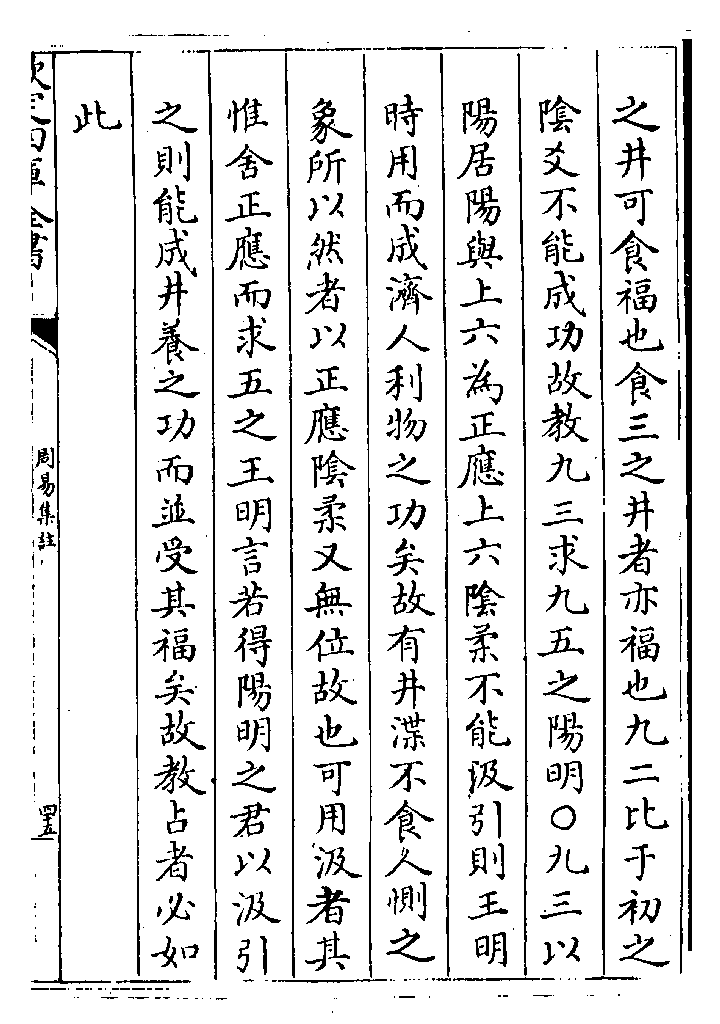 之井可食福也食三之井者亦福也九二比于初之
陰爻不能成功故教九三求九五之陽明〇九三以
陽居陽與上六為正應上六陰柔不能汲引則王明
時用而成濟人利物之功矣故有井渫不食人惻之
象所以然者以正應陰柔又無位故也可用汲者其
惟舍正應而求五之王明言若得陽明之君以汲引
之則能成井養之功而並受其福矣故教占者必如
此
欽定四庫全書
周易集註
四五